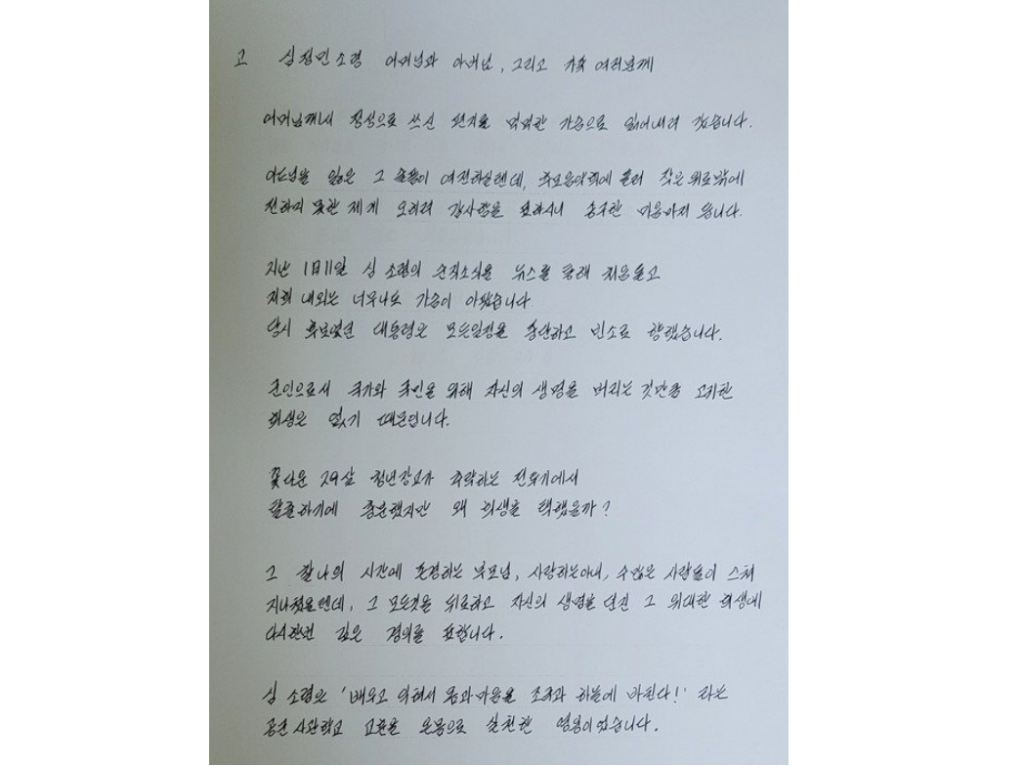 고 심정민 소령 어머님과 아버님, 그리고 가족 여러분께
어머님께서 정성으로 쓰신 편지를 먹먹한 가슴으로 읽어내려 갔습니다.
아드님을 잃은 그 슬픔이 여전하실텐데, 추모음악회에 들러 작은 위로밖에
전하지 못한 제게 오히려 감사함을 표하시니 송구한 마음마저 듭니다.
지난 1월11일 심 소령의 순직소식을 뉴스를 통해 처음듣고
저희 내외는 너무나도 가슴이 아팠습니다
당시 후보였던 대통령은 모든일정을 중단하고 빈소로 향했습니다.
군인으로서 국가와 국민을 위해 자신의 생명을 버리는 것만큼 고귀한
희생은 없기 때문입니다.
꽃다운 29살 청년장교가 추락하는 전투기에서
탈출하기에 충분했지만 왜 희생을 택했을까?
그 찰나의 시간에 존경하는 부모님, 사랑하는아내, 수많은 사람들이 스쳐
지나갔을텐데, 그 모든것을 뒤로하고 자신의 생명을 던진 그 위대한 희생에
다시한번 깊은 경의를 표합니다.
심 소령은 '배우고 익혀서 몸과마음을 조국과 하늘에 바친다!' 라는
공군사관학교 교훈을 온몸으로 실천한 영웅이었습니다.